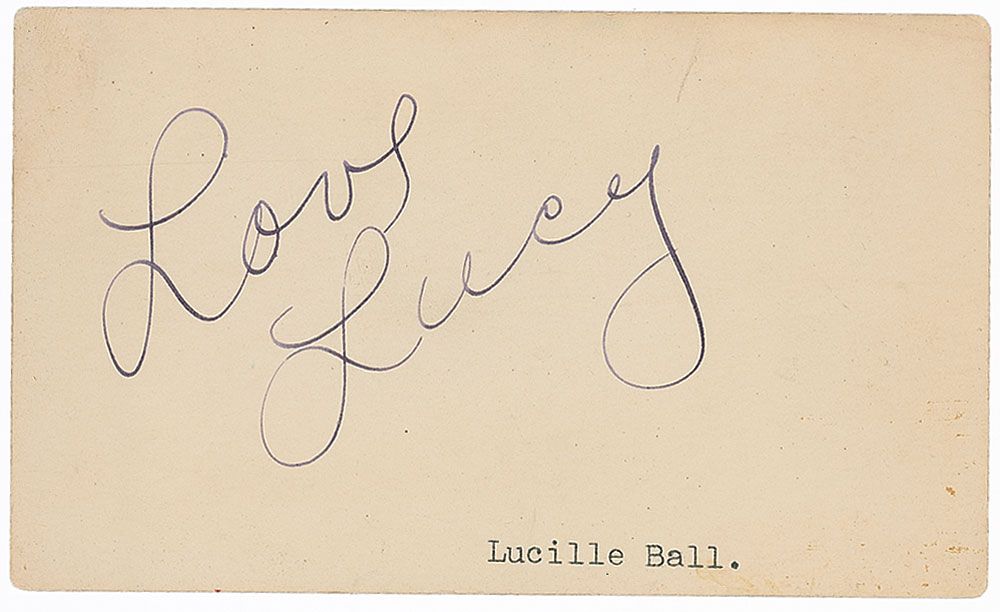 Love
Lucy
Lucille Ball.